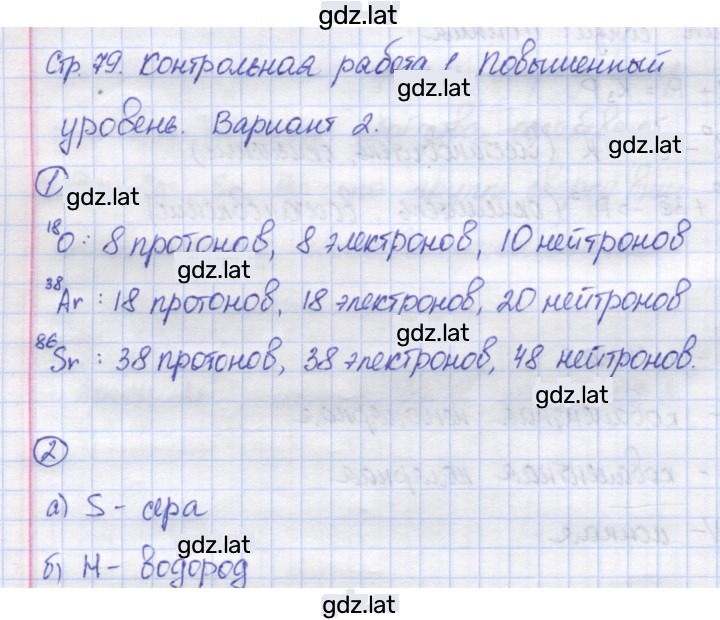 gdz.lat
Стр. 79. Контрольная работа 1 Повышенный
gdz.lat
уровень. Вариант 2.
gdz.lat
1
gdz.lat
¹⁸O: 8 протонов, 8 электронов, 10 нейтронов
gdz.lat
³⁸Ar: 18 протонов, 18 электронов, 20 нейтронов
gdz.lat
⁸⁶Sr: 38 протонов, 38 электронов, 48 нейтронов.
gdz.lat
2
а) S - сера
gdz.lat
б) H - водород
gdz.lat